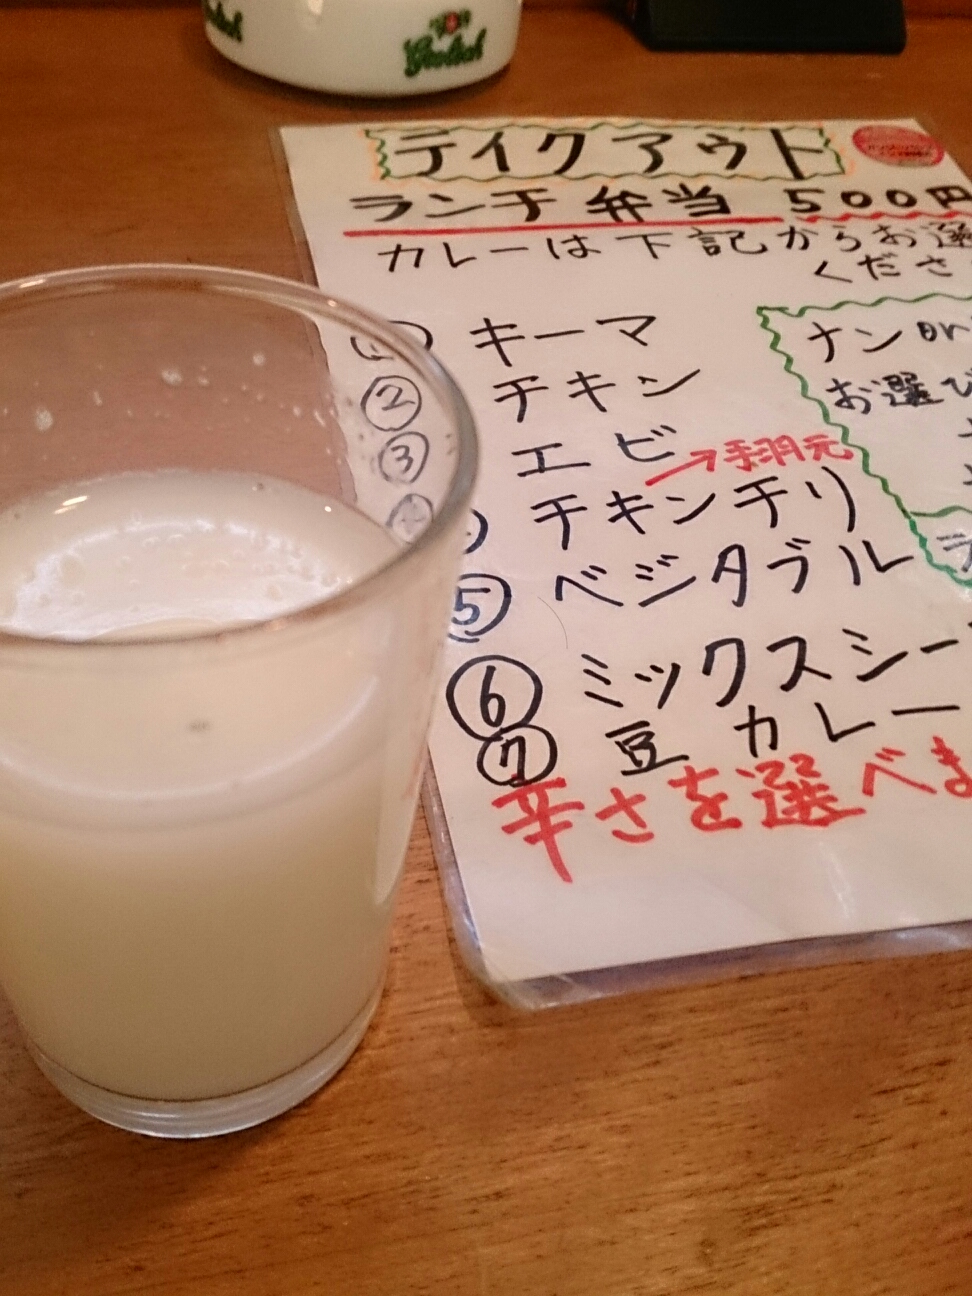 Grolsch
テイクアウト
ランチ弁当 500円
カレーは下記からお選
くださ
① キーマ
② チキン
③ エビ
→手羽元
チキンチリ
⑤ ベジタブル
⑥ ミックスシー
⑦ 豆カレー
辛さを選べま
ナンor
お選び